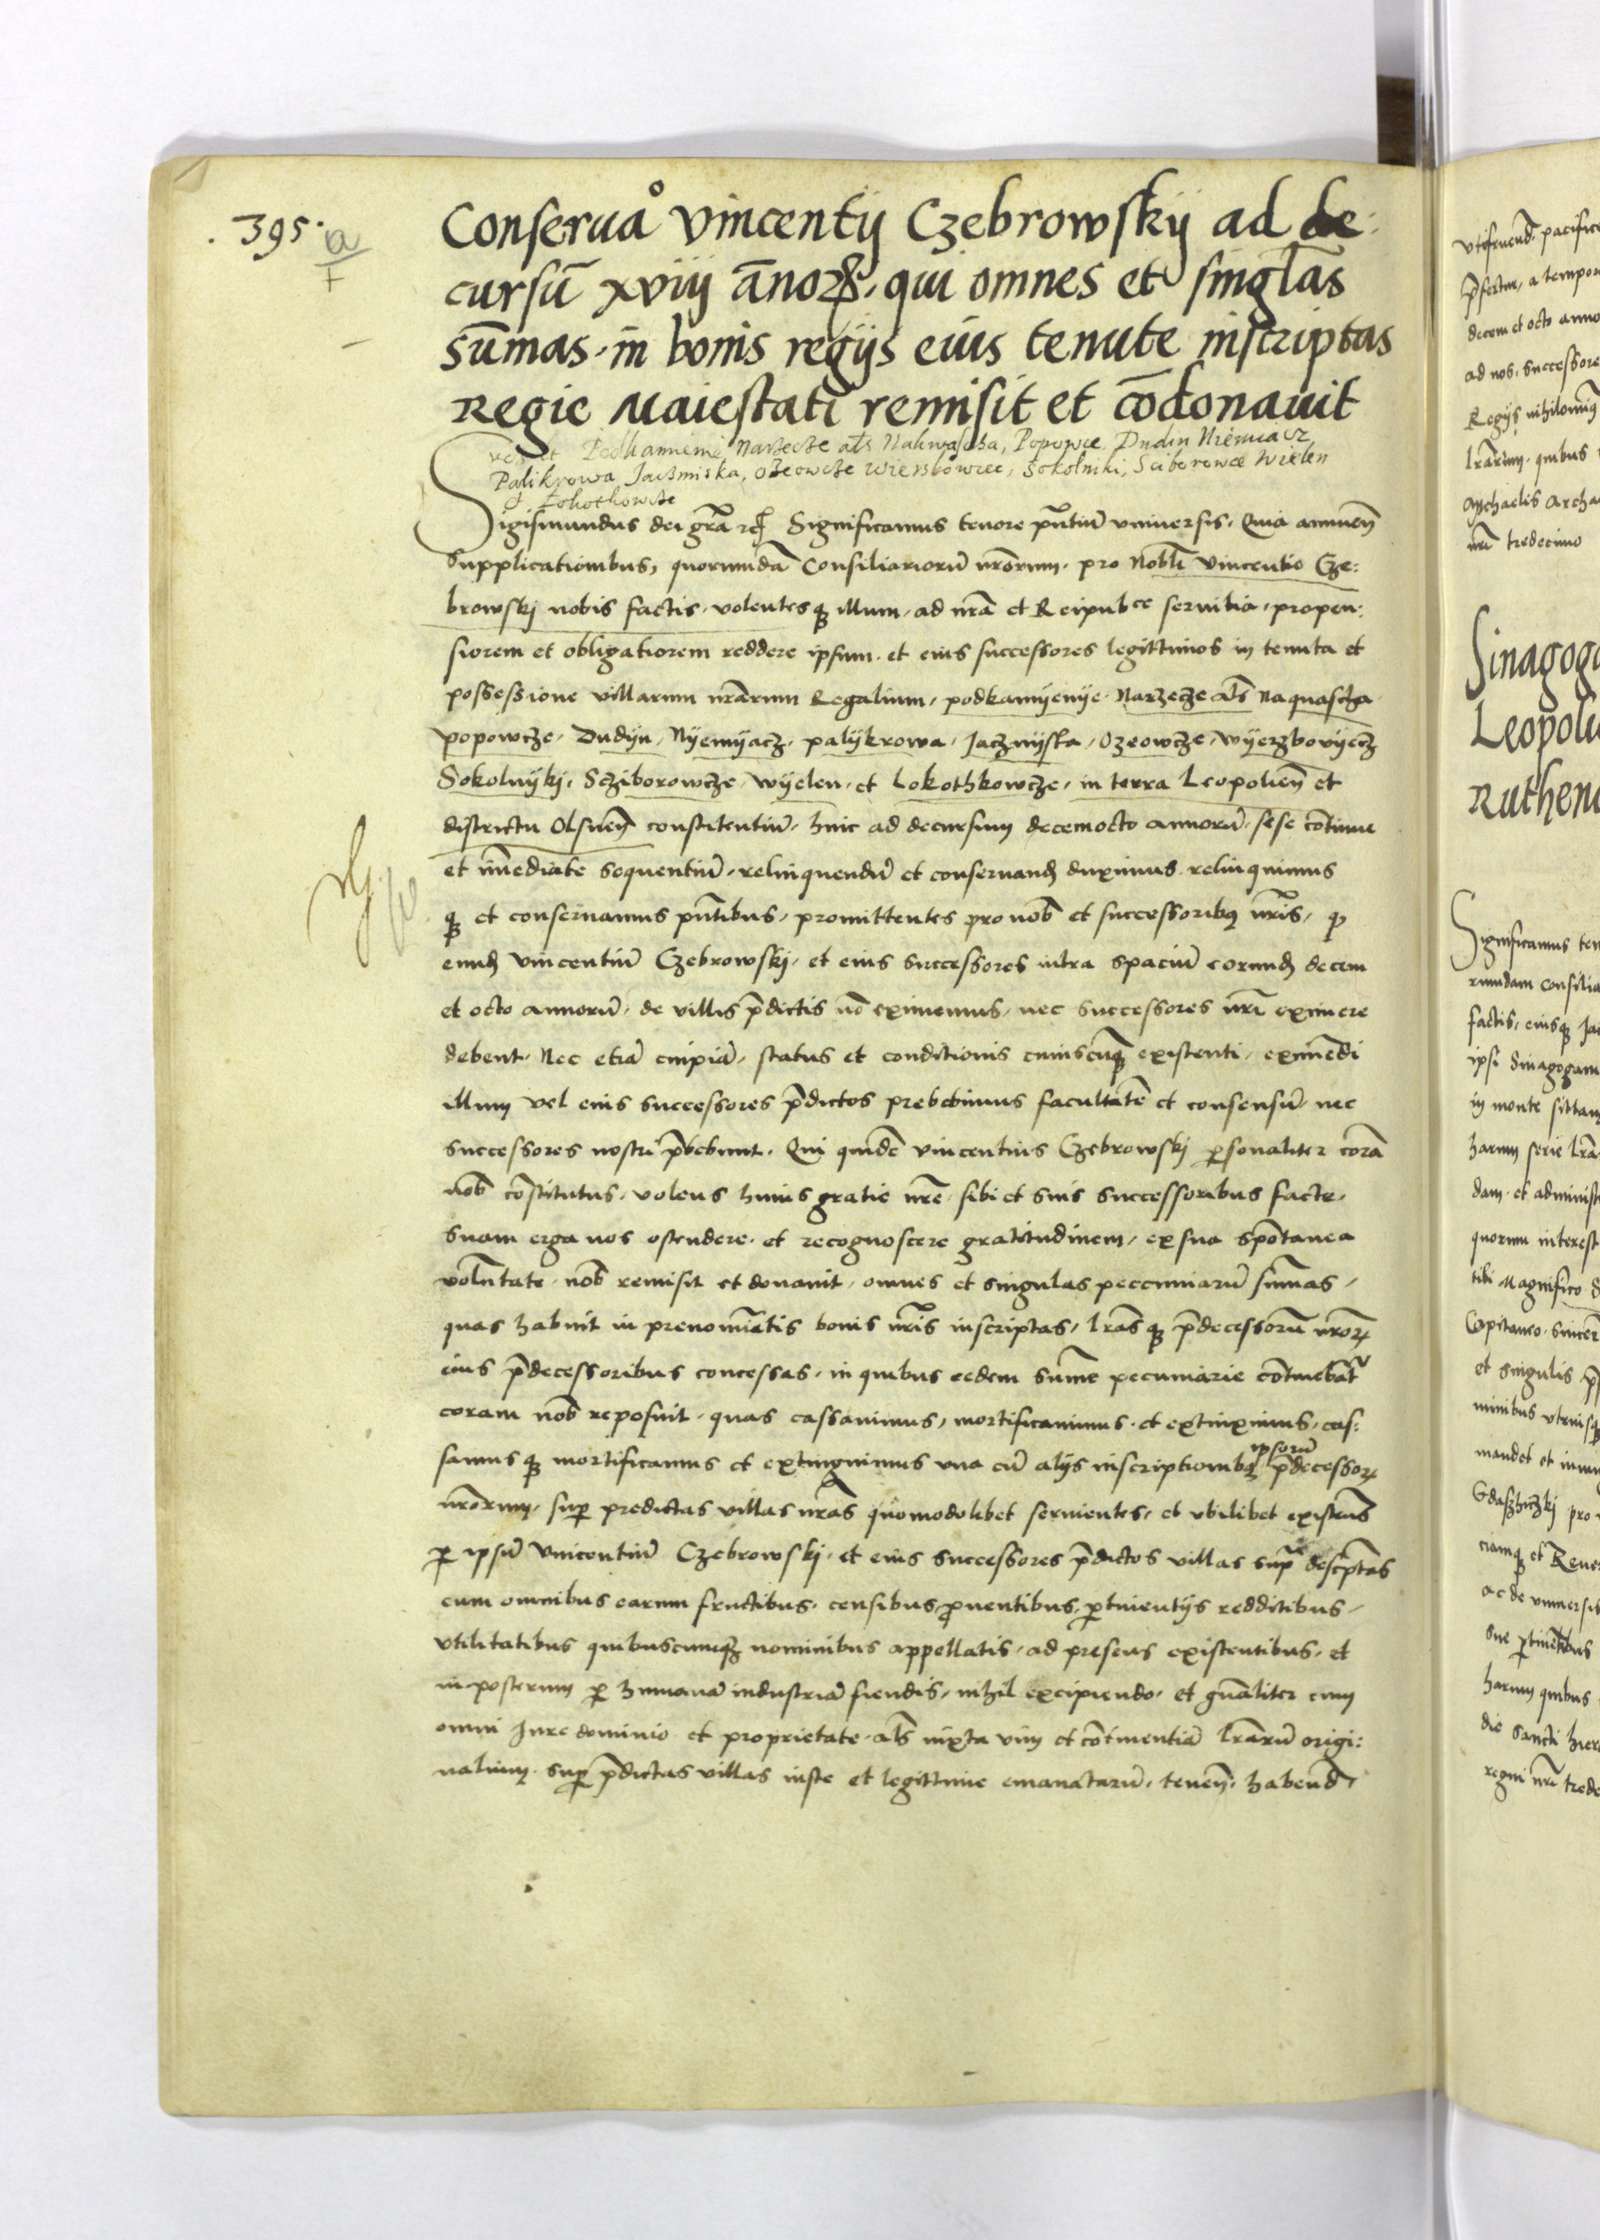 . 395 .
a
Conserua° Vincentij Czebrowskij ad de:
cursū xviij ānoꝝ, qui omnes et singlas
sūmas in bonis regijs eius tenute inscriptas
Regie Maiestati remisit et cōdonauit
Podkamienie Narzecze als Nakwascha, Popowce Dudin Niemiacz
Palikrowa, Jaczmiska, Ozeowcze Wierzbowiec, Sokolniki, Sciborowce Wielen
& Łokothowcze
Sigismundus dei gr̄a rc̄ Significamus tenore pn̄tiū vniuersis, Quia annueñ
Supplicationibus, quorumdā Consiliariorū nr̄orum, pro Nobli Vincentio Cze:
browskj nobis factis, volentesqꝫ illum, ad nr̄a et Reipubce seruitia, propen:
siorem et obligatiorem reddere ipsum, et eius successores legittimos in tenuta et
possessione villarum nr̄arum Regalium, podkamyenye, Narzecze als Naquascha
popowcze, Dudijn, Nyemyacz, palykrowa, Jaczmyska, Ozeowcze, wyerzbovyecz
Sokolnykj, Scziborowcze, wyelen, et Lokothkowcze, in terra Leopolieñ et
districtu Olsneñ consistentiū, hinc ad decursum decemocto annorū, sese cōtinue
et im̄ediate sequentiū, relinquendū et conseruand̄ duximus relinquimus
qꝫ et conseruamus pn̄tibus, promittentes pro nob̄ et successoribꝫ nr̄is, qꝫ
eund̄ Vincentiū Czebrowskj, et eius successores intra spaciū eorund̄ decem
et octo annorū, de villis p̄dictis nō eximemus, nec successores nr̄i eximere
debent, Nec etiā cuipiā, status et conditionis cuiuscūqꝫ existenti, eximēdi
illum vel eius successores p̄dictos prebebimus facultatē et consensū nec
successores nostri p̄bebunt, Qui quidē Vincentius Czebrowskj ꝑsonaliter corā
nob̄ cōstitutus, volens huius gratie nr̄e, sibi et suis successoribus facte,
suam erga nos ostendere, et recognoscere gratitudinem, ex sua spōtanea
volūtate, nob̄ remisit et donauit, omnes et singulas peccuniarū sūmas,
quas habuit in prenomiatis bonis nr̄is inscriptas, lr̄asqꝫ p̄decessorū nr̄oꝝ
eius p̄decessoribus concessas, in quibus eedem sūme pecuniarie cōtinebāt
coram nob̄ reposuit, quas cassauimus, mortificauimus, et extinximus, cas:
samusqꝫ mortificamus et extinguimus vna cū alijs inscriptionibꝫ ipsorū p̄decessoꝝ
nr̄orum, suꝑ predictas villas nr̄as quomodolibet seruientes, et vbilibet existēns
ꝑ ipsū Vincentiū Czebrowskj, et eius successores p̄dictos villas supra descr̄ptas
cum omnibus earum fructibus, censibus, ꝓuentibus, ꝑtinentijs redditibus,
vtilitatibus quibuscunqꝫ nominibus appellatis, ad presens existentibus, et
in posterum ꝑ humanā industriā fiendis, nihil excipiendo, et gn̄aliter cum
omni Jure dominio et proprietate, als iuxta vim et cōtinentiā lr̄arū origi:
nalium, suꝑ p̄dictas villas iuste et legittime emanatarū, teneñ, habend̄,
vtifruend̄ pacifice
p̄fertur, a tempore
decem et octo anno
ad nos, successore
Regijs nihilominꝰ
lr̄arum, quibus
Michaelis Archa
nr̄i tredecimo
Sinagoga
Leopoli
Ruthen
Significamus ten
rumdam consilia
factis, eiusqꝫ Ja
ipsi Sinagogam
in monte sitam
harum serie lr̄a
dam, et administ
quorum interest
tibi Magnifico
Capitaneo, sincer
et singulis
minibus vtriusqꝫ
mandet et
pro
ciamqꝫ et Reue
ac de vniuersis
sue ꝑtinētibus
harum quibus
die sancti hier
regni nr̄i trede